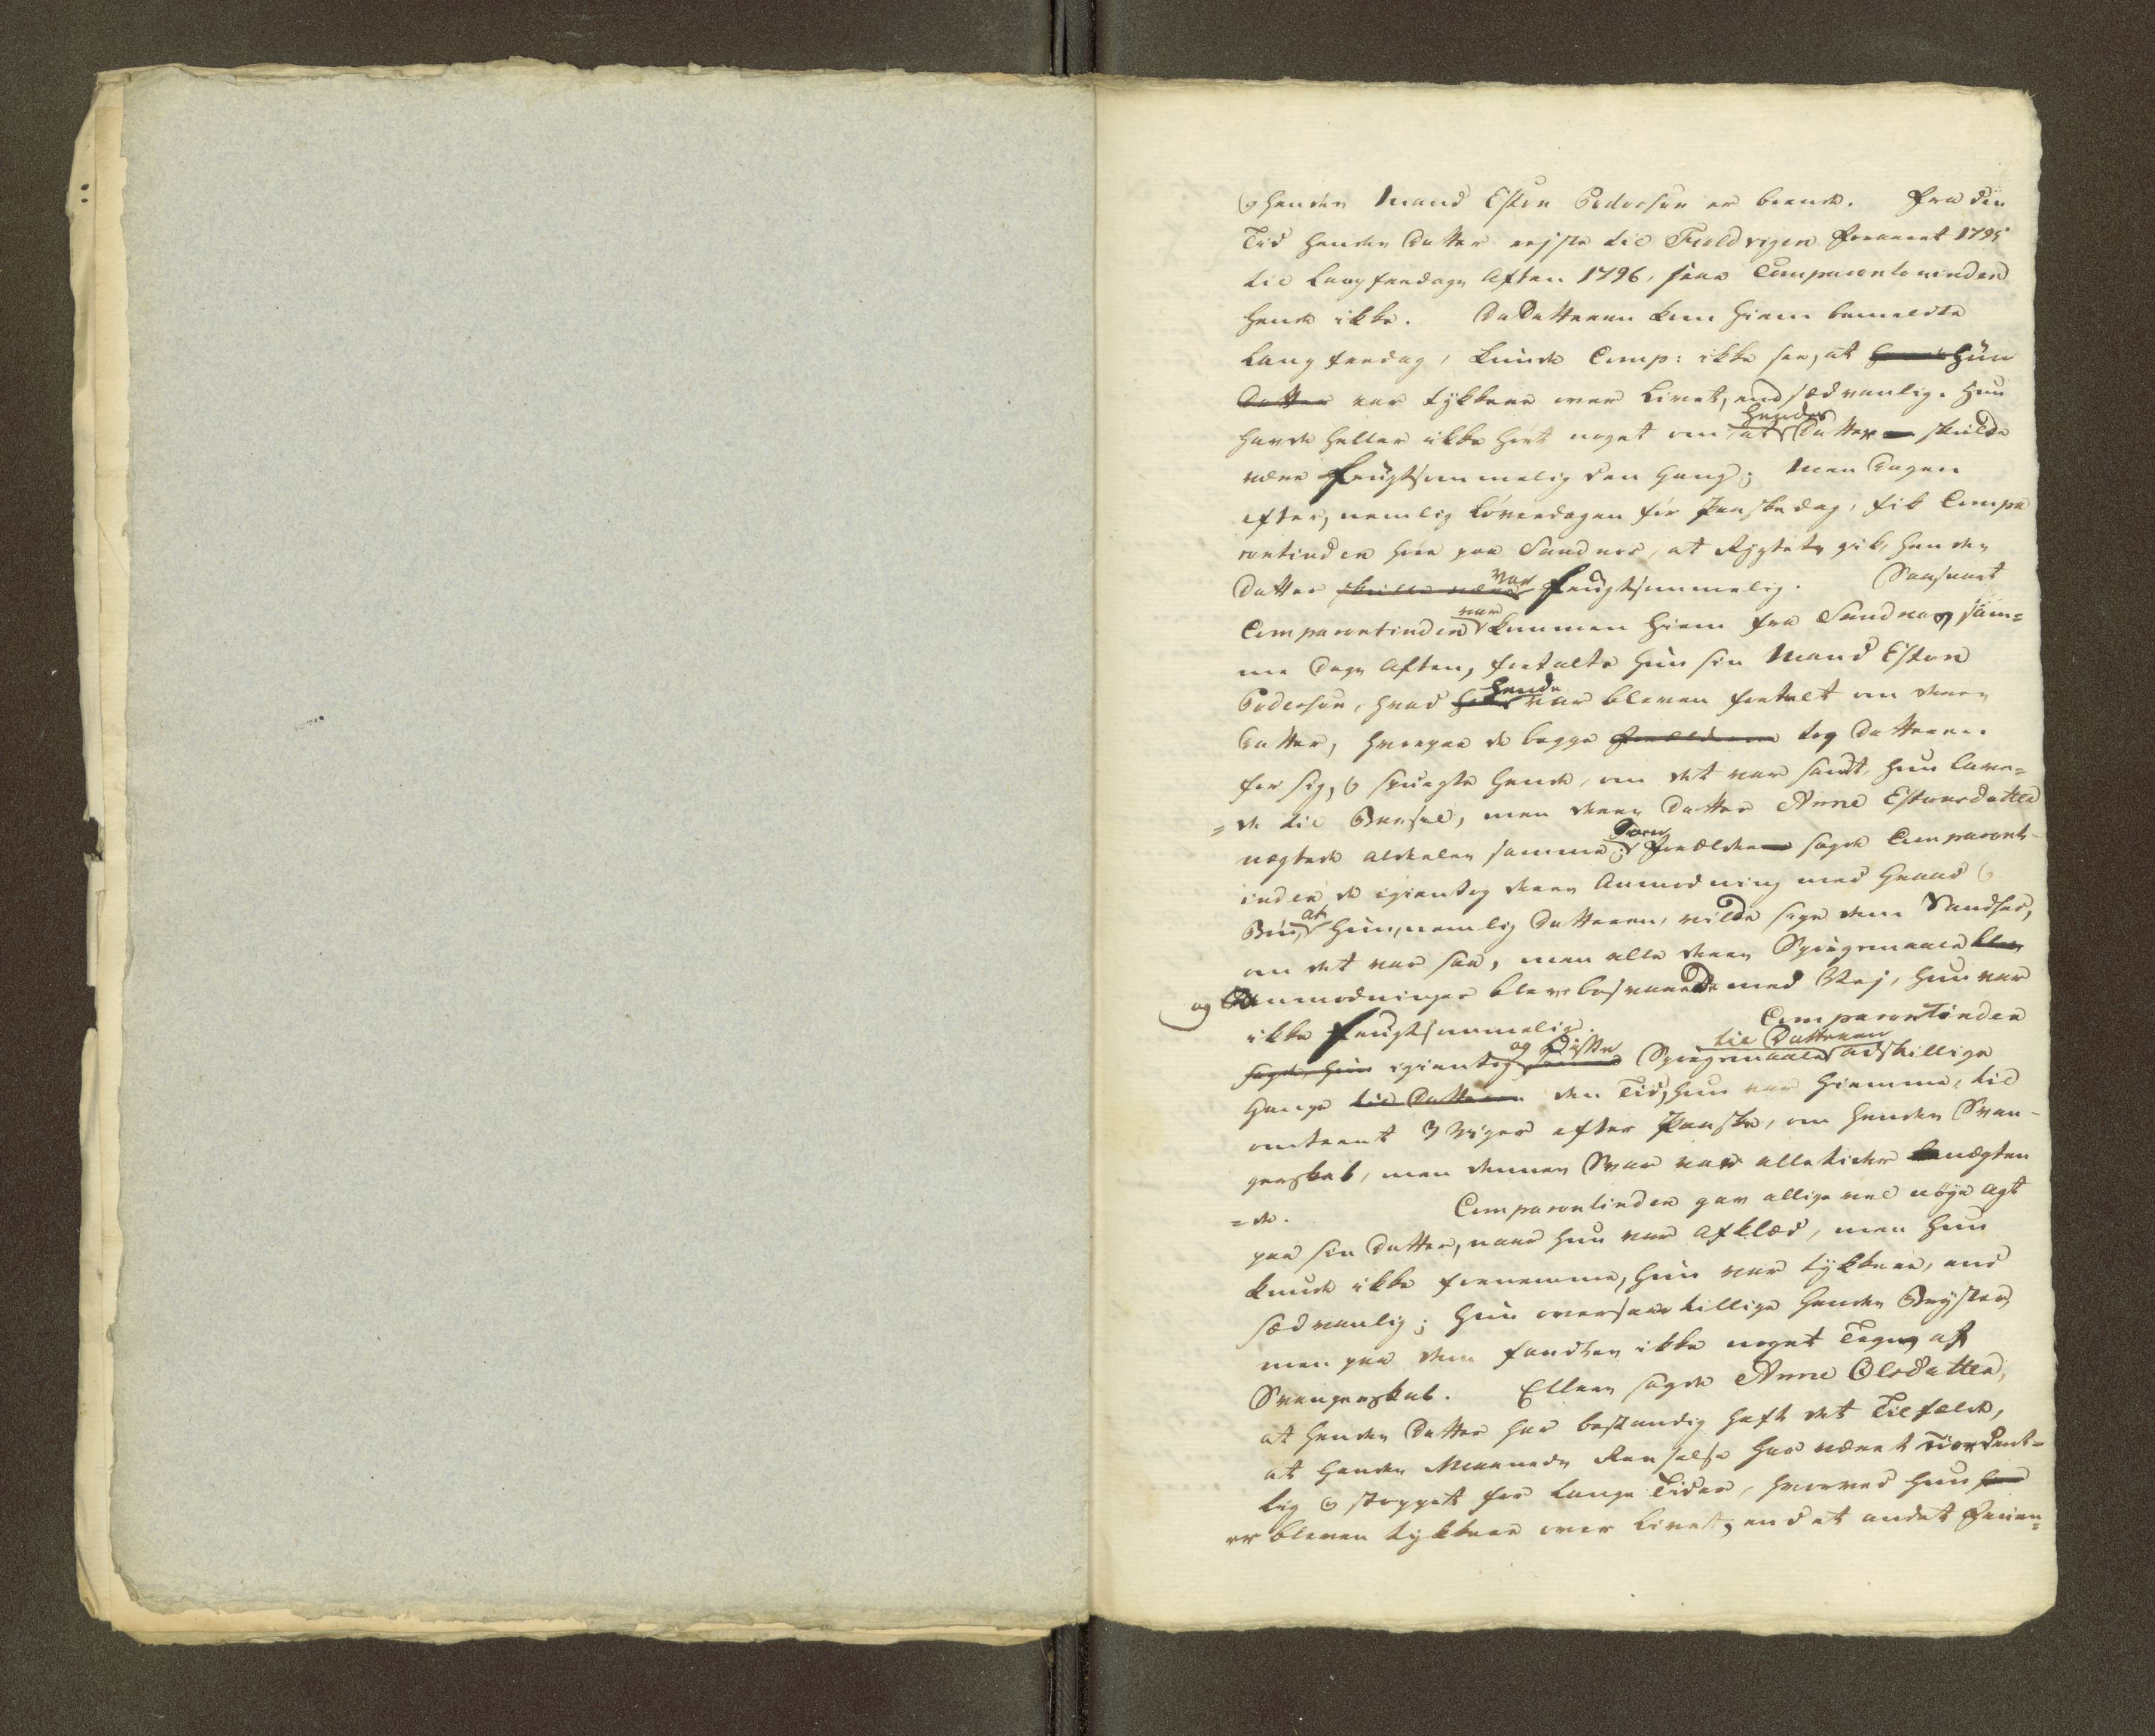 og hendes Mand Esten Pedersen er boende. Fra den
Tid hendes Datter rejste til Fieldvigen foraaret 1795
til Langfredags Aften 1796, saae Comparentinden
hende ikke. Da Datteren kom hiem bemeldte
Langfredag, kunde Comp: ikke see, at hun
Datter var tykkere over Livet, end sædvanlig. Hun
havde heller ikke hört noget om, at hendes Datter skulde
være frugtsommelig den Gang; men Dagen
efter, nemlig Löverdagen för Paaskedag, fik Compa
rentinden höre paa Sandnes, at Rygtet gik, hendes
Datter skulle være var frugtsommelig. Saasnart
Comparentinden var kommen hiem fra Sandnes sam=
me Dags Aften, fortalte hun sin Mand Esten
Pedersen, hvad hende var bleven fortalt om deres
Datter, hvorpaa de begge Forældrene tog Datteren
for sig, og spurgte hende, om det var sandt, hun lave=
=de til Barsel, men deres Datter Anne Estensdatter
nægtede aldeles samme; Forældrene sagde Comparent-
inden de igientog deres Anmodning med Graad og
Bön, at hun, nemlig Datteren, vilde sige dem Sandhed,
om det var saa, men alle deres Spörgsmaale blev
og Anmodninger bleve besvarede med Nej, hun var
ikke frugtsommelig. Comparentinden
sagde, hun igientog og disse Spörgsmaale til Datteren adskillige
Gange til Datteren den Tid, hun var hiemme, til
omtrent 3 Uger efter Paaske, om hendes Svan-
gerskab, men dennes Svar var alletider benægten
=de. Comparentinden gav alligevel nöye agt
paa sin Datter, naar hun var afklæd, men hun
kunde ikke fornemme, hun var tykkere, end
sædvanlig; hun oversaae tillige hendes Bryster,
men paa dem fandtes ikke noget Tegn af
Svangerskab. Ellers sagde Anne Olsdatter,
at hendes Datter har bestandig haft det Tilfælde,
at hendes Maaneds Renselse har været uordent=
lig og stoppet for lange Tider, hvorved hun
er bleven tykkere over Livet, end et andet Fruen=